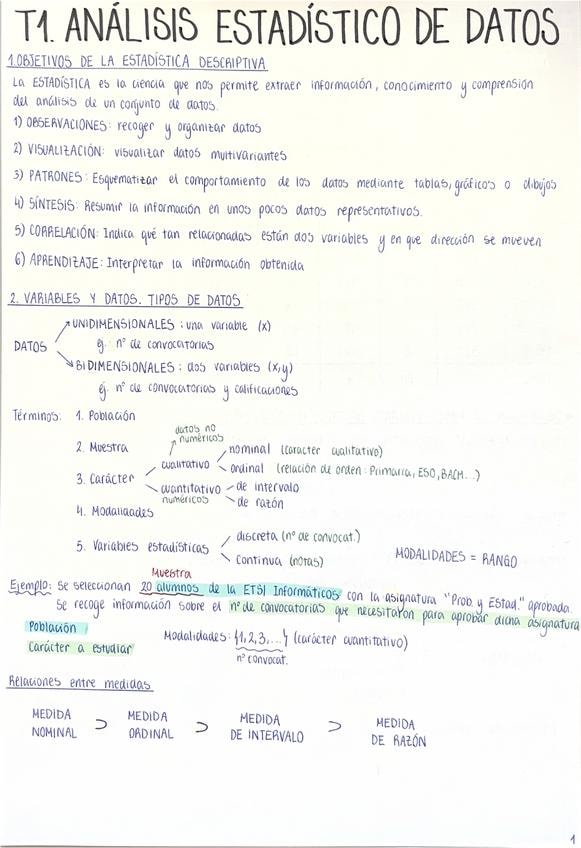 T1. ANÁLISIS ESTADÍSTICO DE DATOS
1. OBJETIVOS DE LA ESTADÍSTICA DESCRIPTIVA
La ESTADÍSTICA es la ciencia que nos permite extraer información, conocimiento y comprensión
del análisis de un conjunto de datos.
1) OBSERVACIONES: recoger y organizar datos
2) VISUALIZACIÓN: visualizar datos multivariantes
3) PATRONES: Esquematizar el comportamiento de los datos mediante tablas, gráficos o dibujos
4) SÍNTESIS: Resumir la información en unos pocos datos representativos.
5) CORRELACIÓN: Indica qué tan relacionadas están dos variables y en que dirección se mueven
6) APRENDIZAJE: Interpretar la información obtenida
2. VARIABLES Y DATOS. TIPOS DE DATOS
UNIDIMENSIONALES: una variable (x)
ej. nº de convocatorias
DATOS
BIDIMENSIONALES: dos variables (x,y)
ej. nº de convocatorias y calificaciones
Términos: 1. Población
datos no
numéricos
2. Muestra
nominal (caracter cualitativo)
cualitativo
ordinal (relación de orden: Primaria, ESO, BACH...)
3. Carácter
cuantitativo de intervalo
numéricos de razón
4. Modalidades
discreta (nº de convocat.)
5. Variables estadísticas
continua (notas)
MODALIDADES = RANGO
Muestra
Ejemplo: Se seleccionan 20 alumnos de la ETSI Informáticos con la asignatura "Prob. y Estad." aprobada.
Se recoge información sobre el nº de convocatorias que necesitaron para aprobar dicha asignatura
Población
Carácter a estudiar
Modalidades: {1,2,3,...} (carácter cuantitativo)
nº convocat.
Relaciones entre medidas
MEDIDA NOMINAL ⊃ MEDIDA ORDINAL ⊃ MEDIDA DE INTERVALO ⊃ MEDIDA DE RAZÓN
1